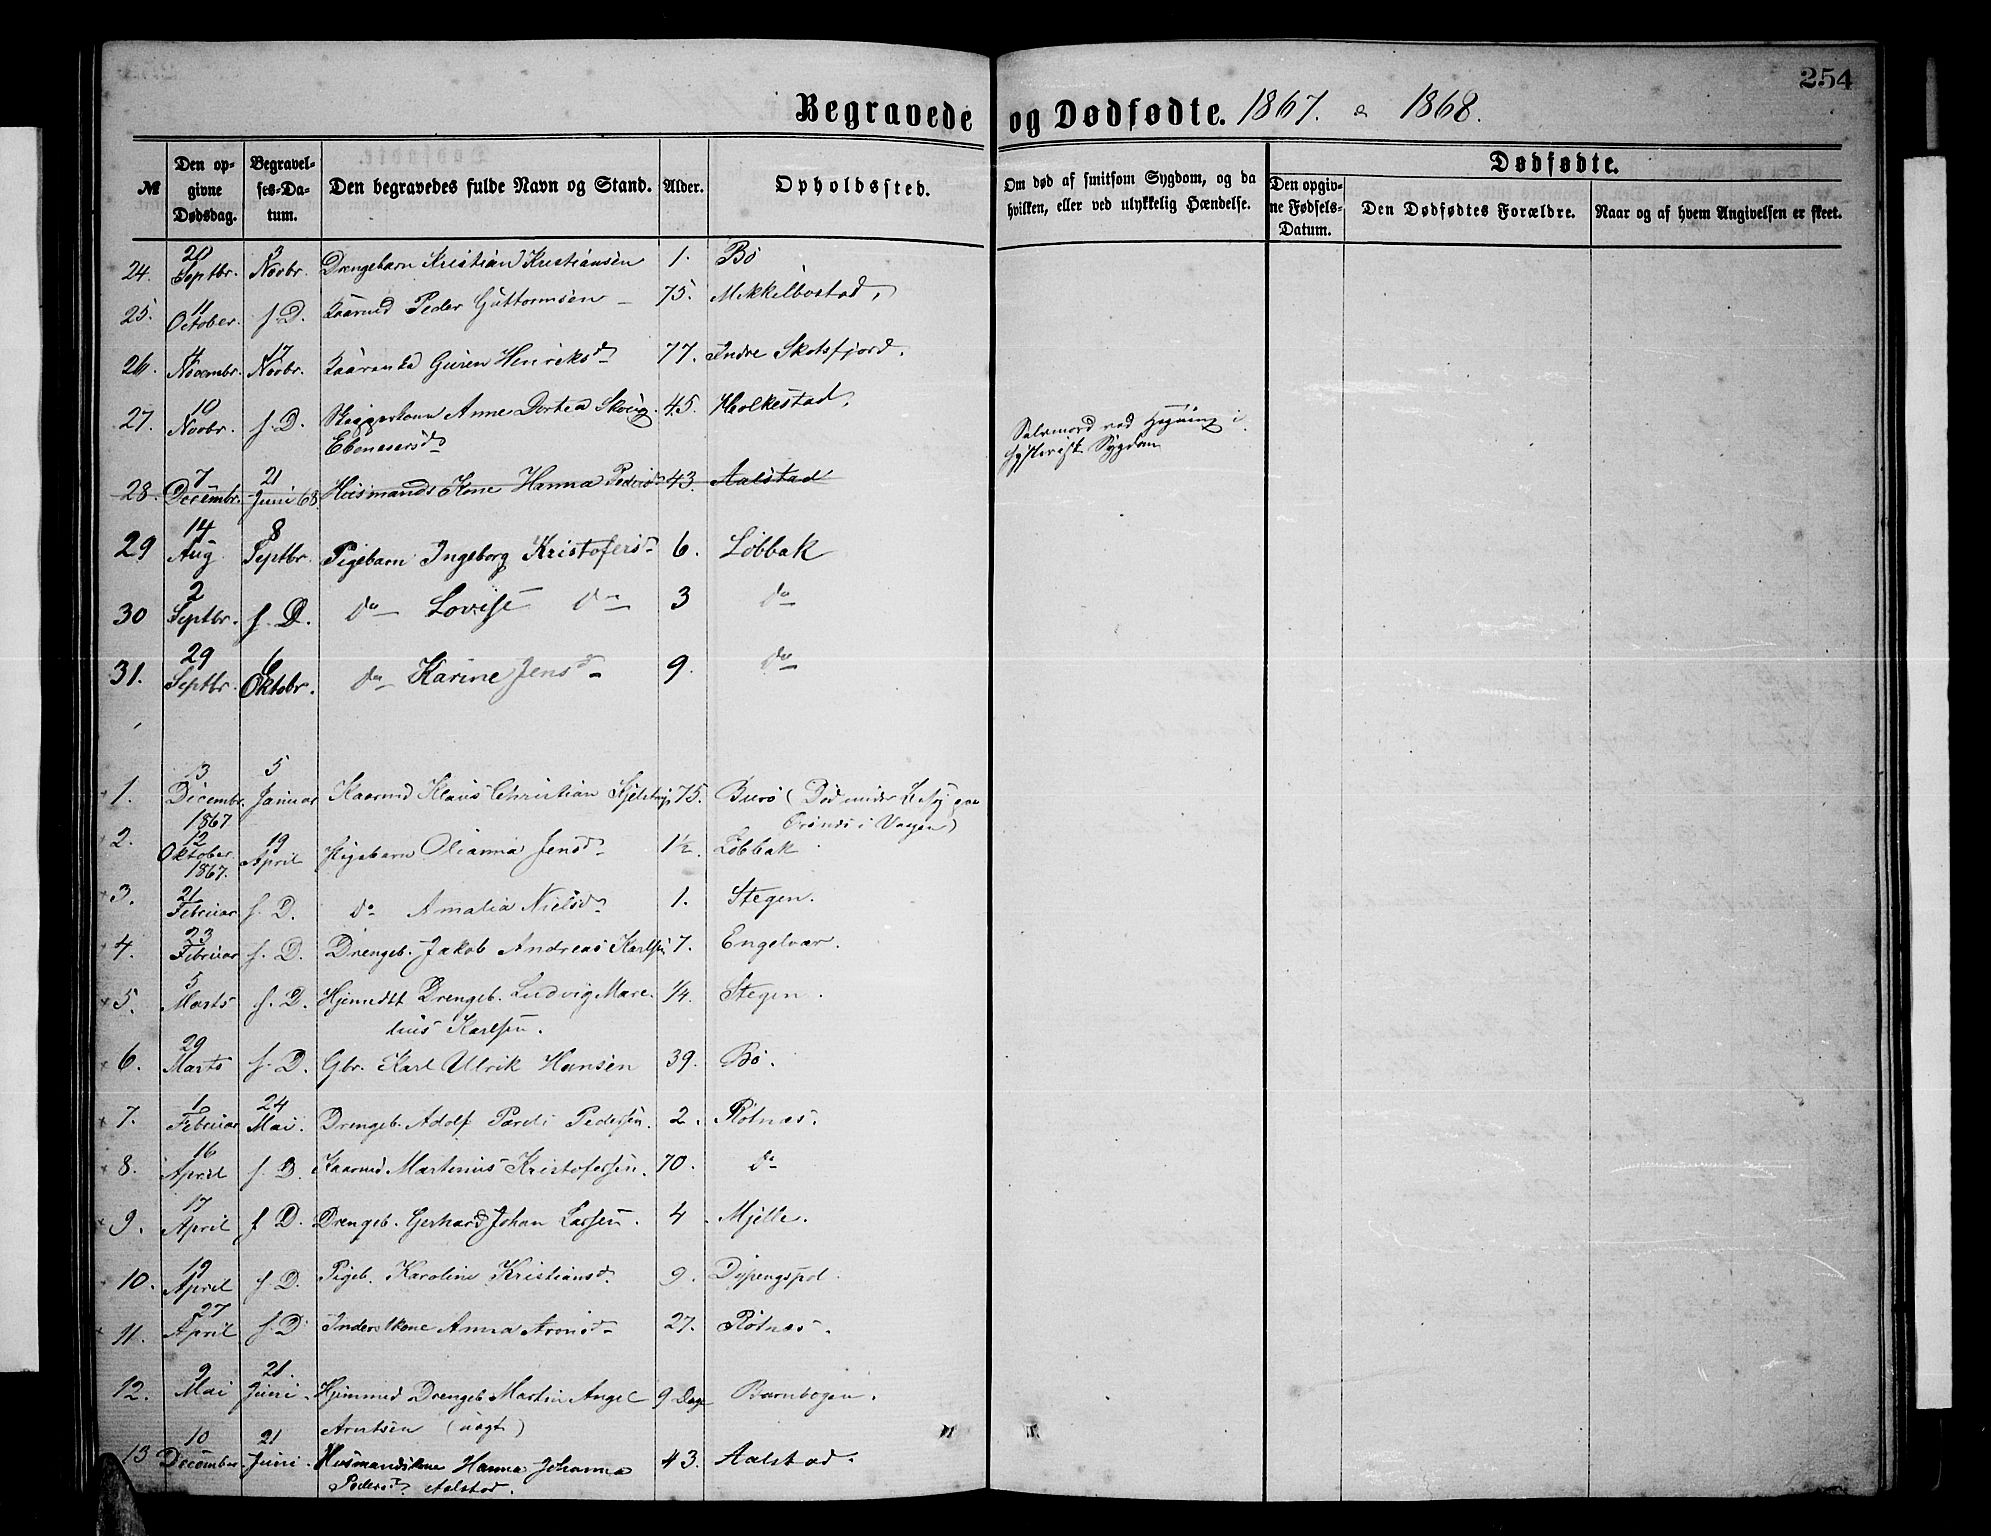 254
Begravede og Dødfødte. 1867. & 1868.
№ Den opgivne Dødsdag. Begravelses-Datum. Den begravedes fulde Navn og Stand. Alder. Opholdssted. Om død af smitsom Sygdom, og da hvilken, eller ved ulykkelig Hændelse. Dødfødte. Den opgivne Fødsels-Datum. Den Dødfødtes Forældre. Naar og af hvem Angivelsen er skeet.
24. 20 Septbr. 3 Novbr. Drengebarn Kristian Kristiansen 1. Bø
25. 11 October. s. D. Kaarmd Peder Guttormsen 75. Mikkelbostad.
26. 4 Novembr. 17 Novbr. Kaarenke Guren Henriksd 77. Indre Skotsfjord.
27. 10 Novbr. s. D. Anne Dortea 45. Holkestad. Selvmord ved Hegning i
Ebenesersd hysterisk Sygdom
28. 7 Decembr. 21 Juni 68. Husmands Kone Hanna Pedersd 43. Aalstad
29 14 Aug 8 Septbr. Pigebarn Ingeborg Kristofersd 6. Løbbak
30 2 Septbr. s. D. do Lovise do 3 do
31. 29 Septbr. 6 Oktobr. do Karine Jensd 9. do
1. 13 Decembr. 1867 5 Januar Kaarmd Klaus Christian Kjelstrup 75. Burø (Død under
i Vaagen)
2. 12 Oktober. 1867. 19 April Pigebarn Olianna Jensd 1½ Løbbak
3. 21 Februar s. D. do Amalia Nielsd 1. Stegen.
4. 23 Februar s. D. Drengeb. Jakob Andreas Karlsen 7. Engelvær.
5. 5 Marts s. D. Hjemmedt Drengeb. Ludvig Mare- ¼. Stegen.
lius Karlsen.
6. 29 Marts s. D. Gbr. Karl Ulrik Hansen 39. Bø.
7. 1 Februar 24 Mai. Drengeb. Adolf Pareli Pedersen. 2. Røtnæs.
8. 16 April s. D. Kaarmd Martinus Kristofersen. 70. do
9. 17 April s. D. Drengeb. Gerhard Johan Larsen. 4. Mjelle.
10. 19 April s. D. Pigeb. Karoline Kristiansd. 9. Dypengspol.
11. 27 April s. D. Inders Kone Anna Aronsd 27. Røtnæs.
12. 9 Mai 21. Juni. Hjemmed Drengeb Martin Angel 9 Dage Bornbogen.
Arntsen (uægt)
13 10 December. 21 Juni. Husmandskone Hanna Johanna 43. Aalstad.
Pedersd. Aalstad.